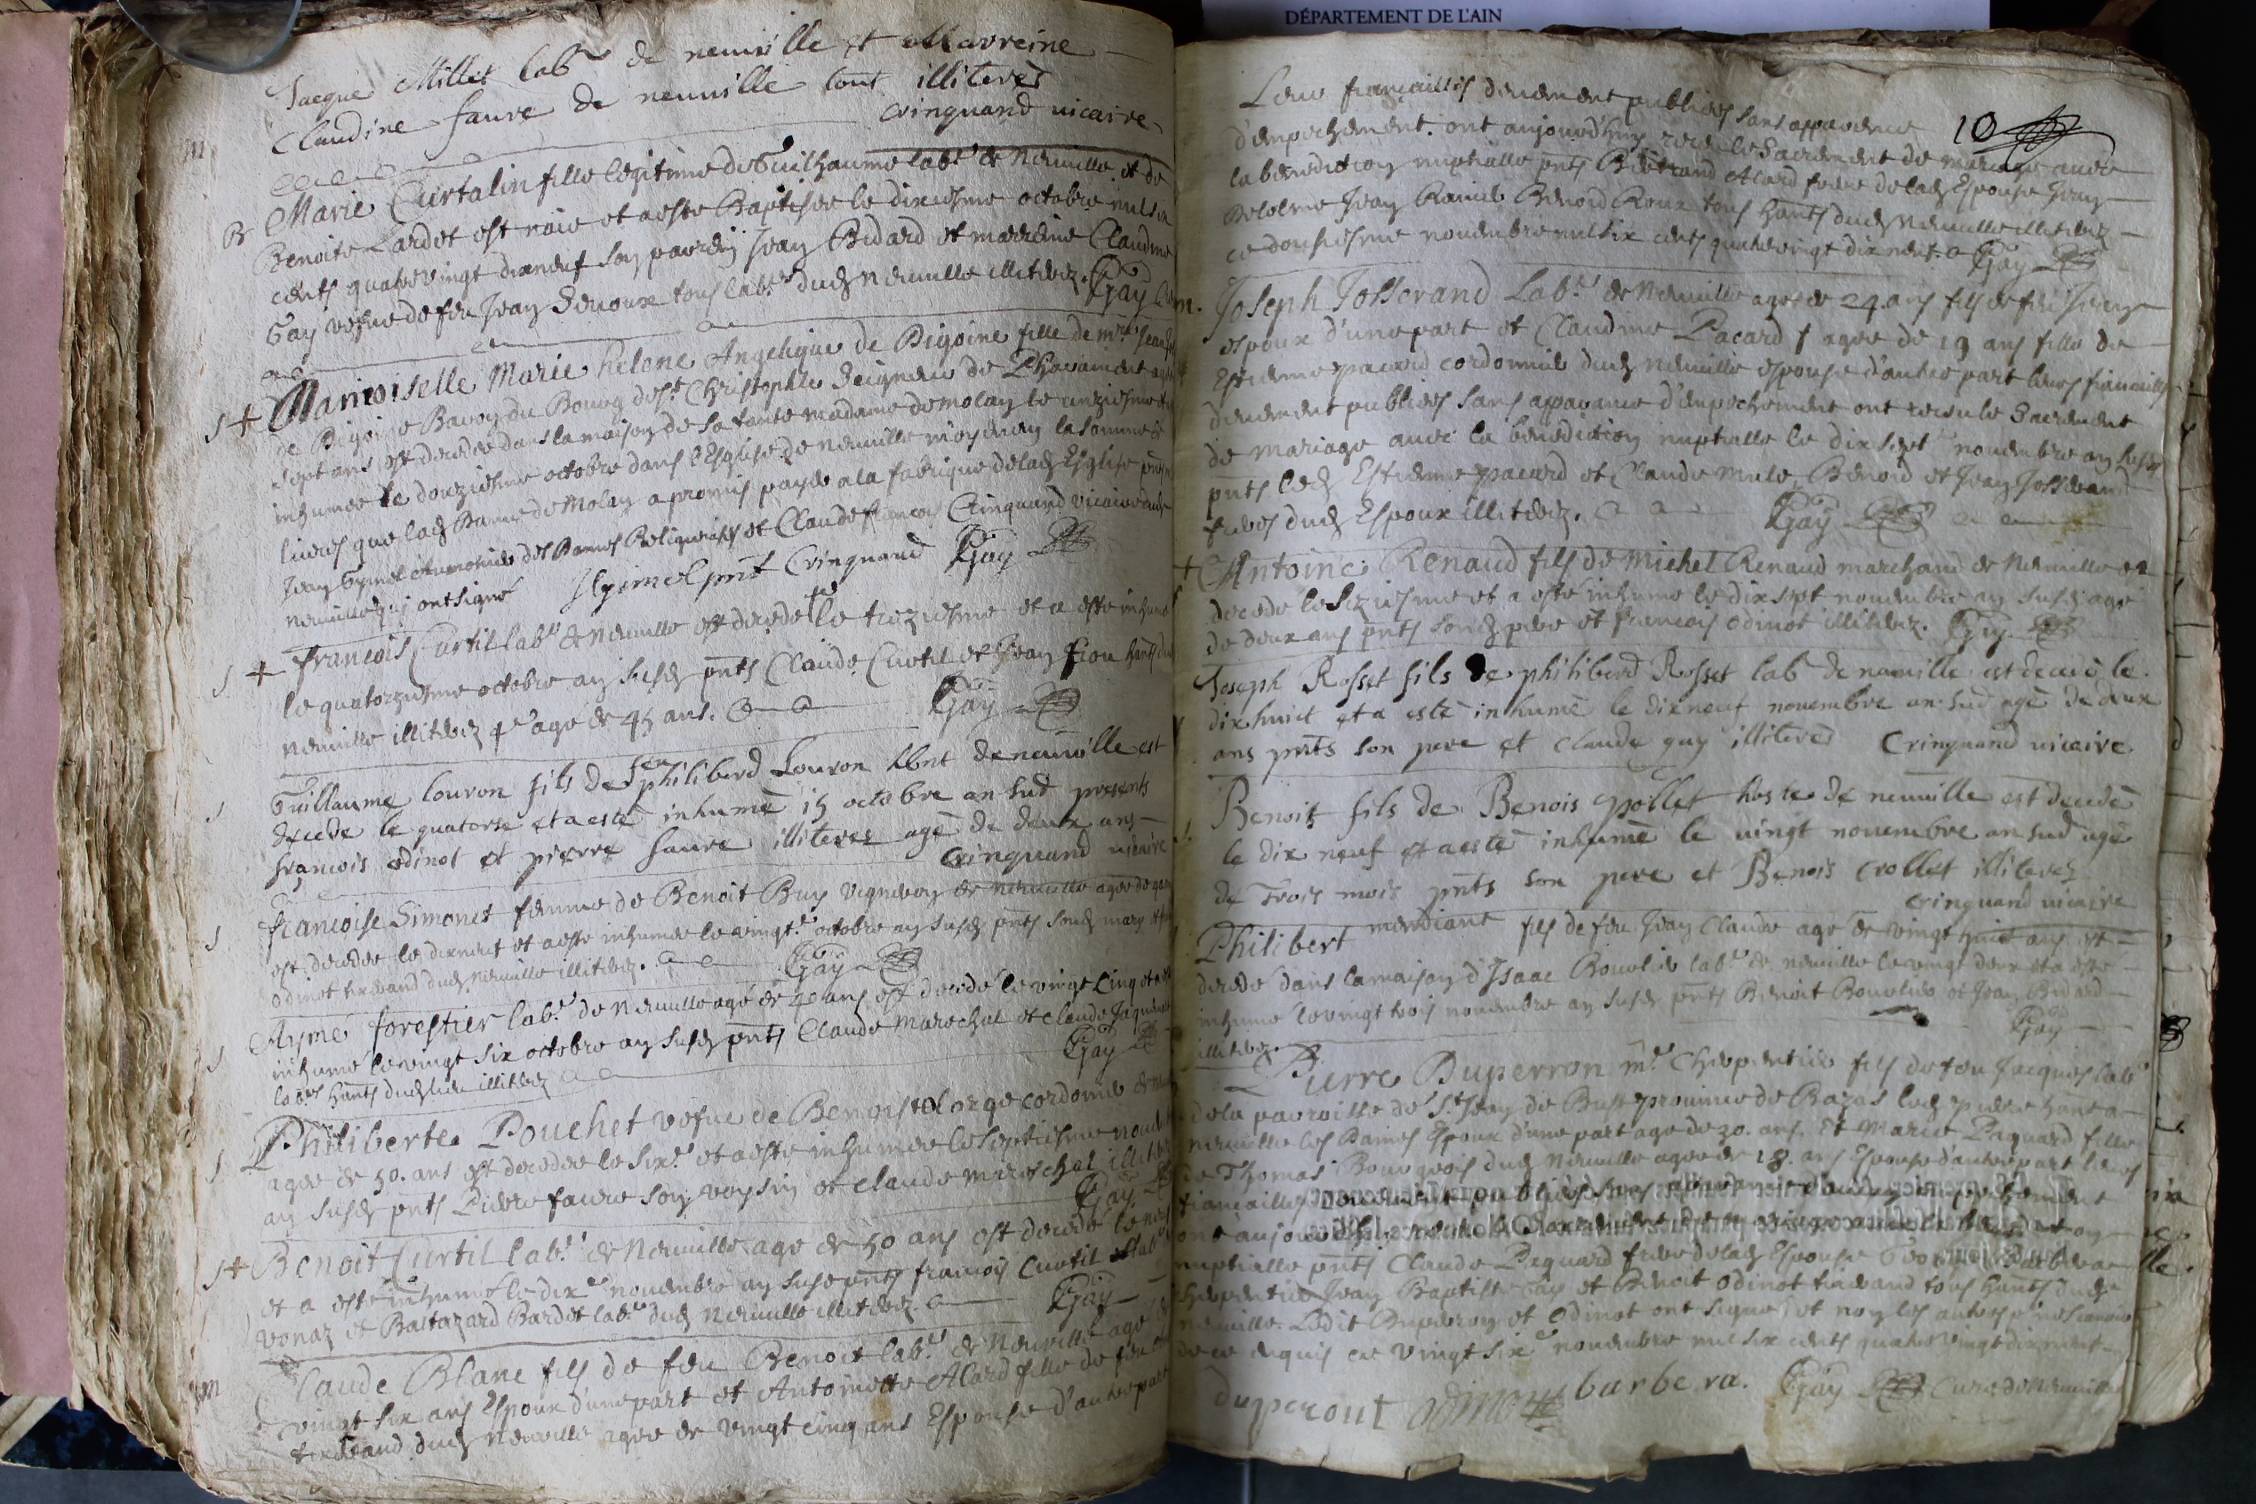 DÉPARTEMENT DE L'AIN
Jacque Millet lab.r de neuville et Marreine
Claudine faure de neuville tout illiterés
Cringuand vicaire
B Marie Curtalin fille legitime de Guilhaume lab.r de Neuville et de
Benoite Lardet est naie et a este Baptisée le dixiesme octobre mil six
cents quatre vingt dixneuf son parrein Jean Bidard et marreine Claudine
Gay vefue de feu Jean tous lab.rs dud Neuville illiterez. Gay
S + Damoiselle Marie helene Angelique de Digoine fille de m.re Jean
de Digoine Baron du Bourg de S.t Christophle Seigneur de agée
sept ans est decedee dans la maison de sa tante madame de molay le unziesme
inhumee le douziesme octobre dans l'Esglise de neuville moyenan la somme de
liures que lad Dame de Molay a promis payer a la fabrique de lad Esglise
Jean Gymel Aumonier des Dames Religieuses et Claude francois Cringuand vicaire aud
neuville qui ont signé JGimel pnt Cringuand Gay
S + francois Curtil lab.r de Neuville est decede le treziesme et a este inhumé
le quatorziesme octobre an susd pnts Claude Curtil et Jean fion hants dud
neuville illiterez agé de 45 ans. Gay
S Guillaume louron fils de feu philiberd Louron de neuville est
decede le quatorse et a esté inhumé 15 octobre an sud presents
francois odinot et pierre faure illiteres agé de deux ans
Cringuand vicaire
S francoise Simonet femme de Benoit Buy vigneron de Neuville agee de
est decedee le dixneuf et a este inhumee le vingt.e octobre an susd pnts sond mary et
odinot tixerand dud Neuville illiterez. Gay
S Aymé forestier lab.r de Neuville agé de 40 ans est decedé le vingt cinq et a
inhumé le vingt six octobre an susd pnts Claude Marechal et Claude
lab.rs hants dud lieu illiterez Gay
S Philiberte Pouchet vefue de Benoist cordonnier de
agee de 50. ans est decedee le six.e et a este inhumee le septiesme
an susd pnts Pierre faure son voysin et Claude Mareschal
Gay
S + Benoit Curtil lab.r de Neuville agé de 50 ans est decedé le
et a este inhumé le dix.e novembre an susd pnts francois Curtil lab.r
vonaz et Baltazard Bardet lab.r dud Neuville illiterez. Gay
m Claude Blanc fils de feu Benoit lab.r de Neuville agé de
vingt six ans Espoux d'une part et Antoinette Alard fille de feu
tixerand dud Neuville agee de vingt cinq ans Espouse d'autre part
10
Leurs fiançailles deuement publiees sans apparence
d'empechement. ont aujourd'huy receu le Sacrement de mariage auec
la benediction nuptialle pnts Bertrand Alard frere de lad Espouse Jean
Jean Benoid Roux tous hants dud Neuville illiterez
ce novembre mil six cents quatre vingt dix neuf. Gay
m. Joseph Josserand Lab.r de Neuville agé de 24. ans fils de feu Jean
espoux d'une part et Claudine Pacard agee de 19 ans fille de
Estienne pacard cordonnier dud Neuville espouse d'autre part leurs fiancailles
deuement publiees sans apparance d'empechement ont receu le Sacrement
de Mariage auec la benediction nuptialle le dix sept.e novembre an susd
pnts led Estienne pacard et Claude Benoid et Jean Josserand
freres dud Espoux illiterez. Gay
+ Antoine Renaud fils de Michel Renaud marchand de Neuville est
decede le seziesme et a este inhumé le dix sept novembre an susd agé
de deux ans pnts sond pere et francois odinot illiterez. Gay
Joseph Rosset fils de philiberd Rosset lab de neuville est decede le
dix huict et a esté inhumé le dix neuf novembre an sud agé de deux
ans pnts son pere et Claude gay illiteres Cringuand vicaire
Benoit fils de Benois pollet hoste de neuville est decedé
le dix neuf et a esté inhumé le vingt novembre an sud agé
de trois mois pnts son pere et Benois Crollet illiterez
Cringuand vicaire
Philibert mendiant fils de feu Jean Claude agé de vingt huit ans est
decedé dans la maison d'Isaac Bouvlier lab.r de neuville le vingt deux et a esté
inhumé le vingt trois novembre an susd pnts Benoit et Jean Bidard
illiterez. Gay
Pierre Duperron m.e Cherpentier fils de feu Jacques lab.r
de la parroisse de S.t Jean de province de Bazas led pierre hant a
neuville les Dames Espoux d'une part agé de 30. ans. Et Marie Paquard fille
de Thomas Bourgeois dud Neuville agee de 18. ans Espouse d'autre part leurs
fiancailles deuement publiees sans apparance d'aucun empechement
ont aujourd'huy receu le Sacrement de mariage auec la benediction
nuptialle pnts Claude Paquard frere de lad Espouse Barbera
cherpentier Jean Baptiste Gay et Benoit Odinot tixerand tous hants dud
neuville. Ledit Duperron et Odinot ont signé et non les autres
de ce enquis ce vingt six.e novembre mil six cents quatre vingt dix neuf
duperont odinot barbera. Gay Curé de Neuville